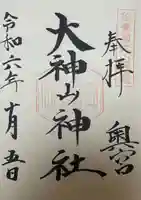 奉拝
奥宮
大神山神社
令和六年十月五日